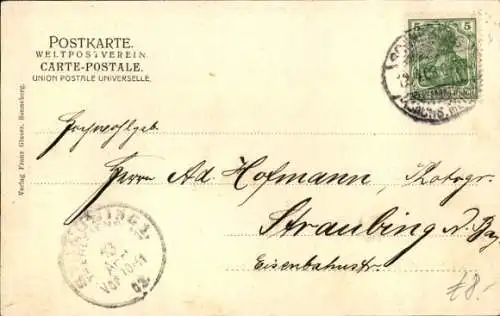 POSTKARTE.
WELTPOSTVEREIN.
CARTE-POSTALE.
UNION POSTALE UNIVERSELLE.
5 5
Verlag Franz Glaser, Sonneberg.
Hochwohlgeb.
Herrn Ad. Hofmann, Photogr.
Straubing N. Bay
Eisenbahnstr.
STRAUBING 1.
VOR 10-11
02.
£8.-